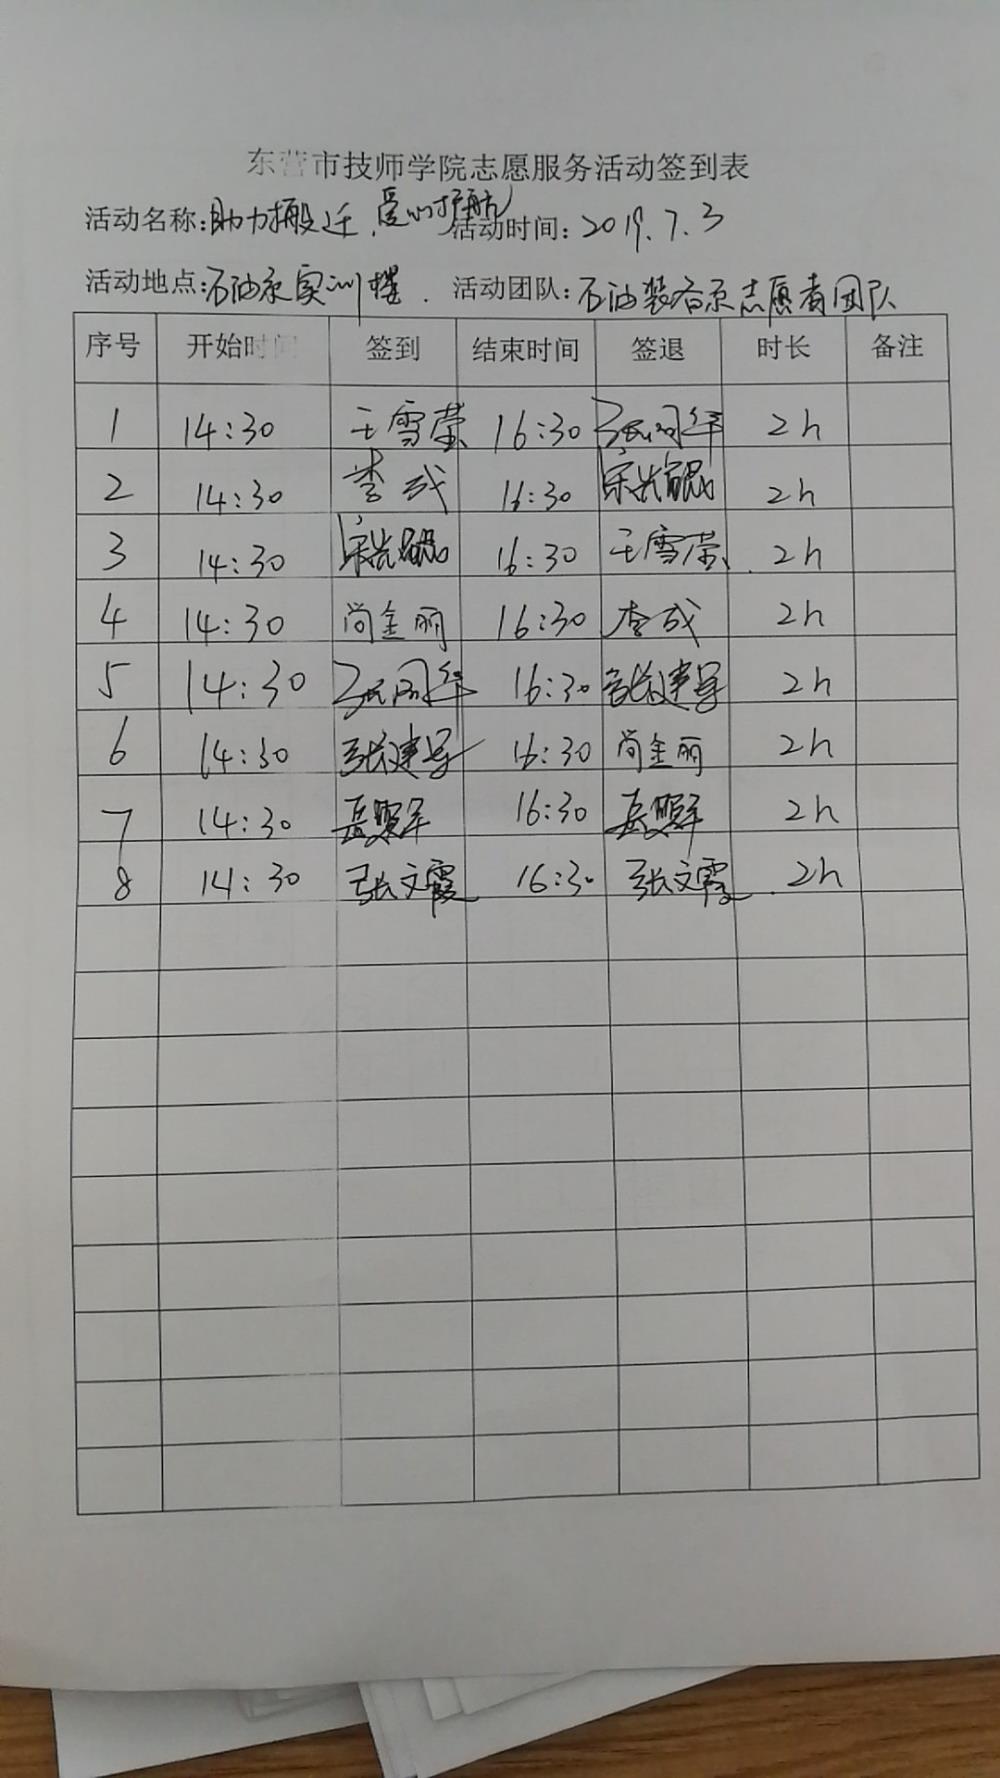 东营市技师学院志愿服务活动签到表
活动名称:助力搬迁、爱心护航 活动时间:2019.7.3
活动地点:石油系实训楼. 活动团队:石油装备系志愿者团队
序号 开始时间 签到 结束时间 签退 时长 备注
1 14:30 王雪莹 16:30 2h
2 14:30 李成 16:30 2h
3 14:30 16:30 王雪莹 2h
4 14:30 尚金丽 16:30 李成 2h
5 14:30 16:30 张建军 2h
6 14:30 张建军 16:30 尚金丽 2h
7 14:30 16:30 2h
8 14:30 张文霞 16:30 张文霞 2h